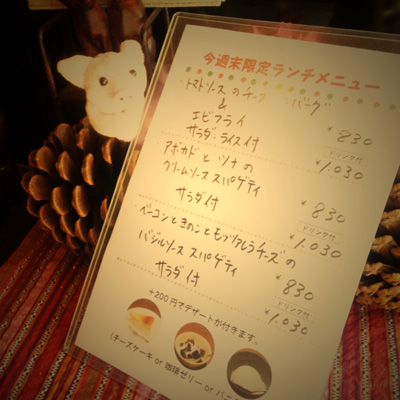 今週末限定ランチメニュー
・トマトソースのチーズハンバーグ
&
エビフライ ¥830
サラダ・ライス付 ドリンク付 ¥1,030
・アボカドとツナの
クリームソーススパゲティ ¥830
サラダ付 ドリンク付 ¥1,030
・ベーコンときのこともモッツァレラチーズの
バジルソーススパゲティ ¥830
サラダ付 ドリンク付 ¥1,030
+200円でデザートが付きます。
(チーズケーキ or 珈琲ゼリー or バニ